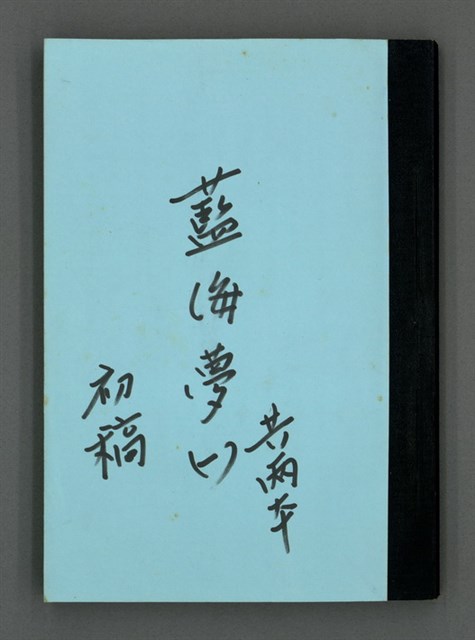 共兩本
藍海夢(一)
初稿